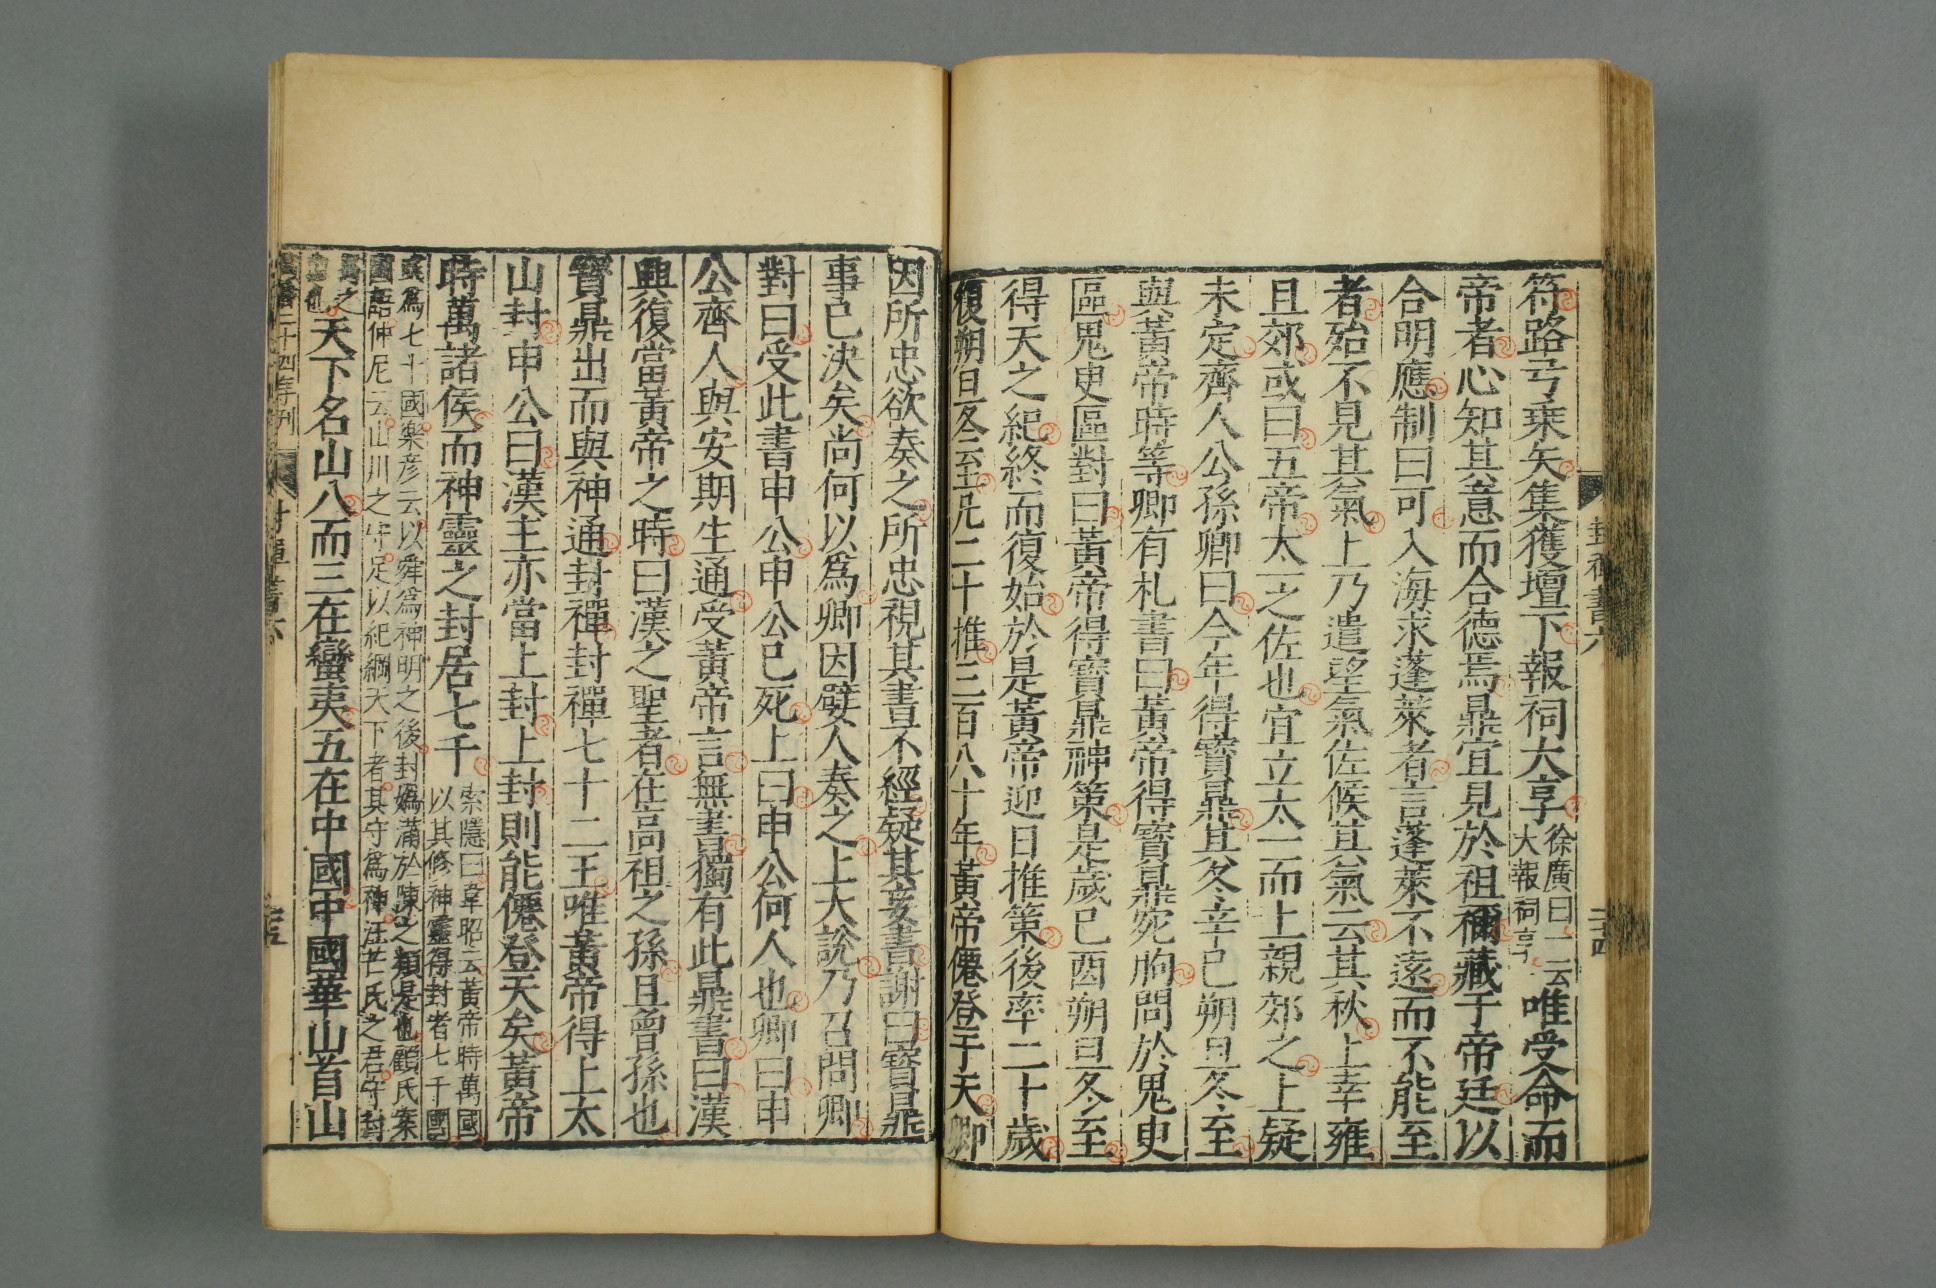 符路弓乘矢集獲壇下報祠大享徐廣曰一云大報祠享唯受命而
帝者心知其意而合德焉鼎宜見於祖禰藏于帝廷以
合明應制曰可入海求蓬萊者言蓬萊不遠而不能至
者殆不見其氣上乃遣望氣佐候其氣云其秋上幸雍
且郊或曰五帝太一之佐也宜立太一而上親郊之上疑
未定齊人公孫卿曰今年得寶鼎其冬辛巳朔旦冬至
與黃帝時等卿有札書曰黃帝得寶鼎宛朐問於鬼臾
區鬼臾區對曰黃帝得寶鼎神策是歲己酉朔旦冬至
得天之紀終而復始於是黃帝迎日推策後率二十歲
復朔旦冬至凡二十推三百八十年黃帝僊登于天卿
封禪書六
二十四
因所忠欲奏之所忠視其書不經疑其妄書謝曰寶鼎
事已決矣尚何以爲卿因嬖人奏之上大說乃召問卿
對曰受此書申公申公已死上曰申公何人也卿曰申
公齊人與安期生通受黃帝言無書獨有此鼎書曰漢
興復當黃帝之時曰漢之聖者在高祖之孫且曾孫也
寶鼎出而與神通封禪封禪七十二王唯黃帝得上太
山封申公曰漢主亦當上封上封則能僊登天矣黃帝
時萬諸侯而神靈之封居七千索隱曰韋昭云黃帝時萬國以其修神靈得封者七千國
或爲七十國樂彥云以舜爲神明之後封嬀滿於陳之類是也顧氏案
國語仲尼云山川之守足以紀綱天下者其守爲神汪芒氏之君守封
禺之
也
天下名山八而三在蠻夷五在中國中國華山首山
二十四年刊
封禪書六
二十五